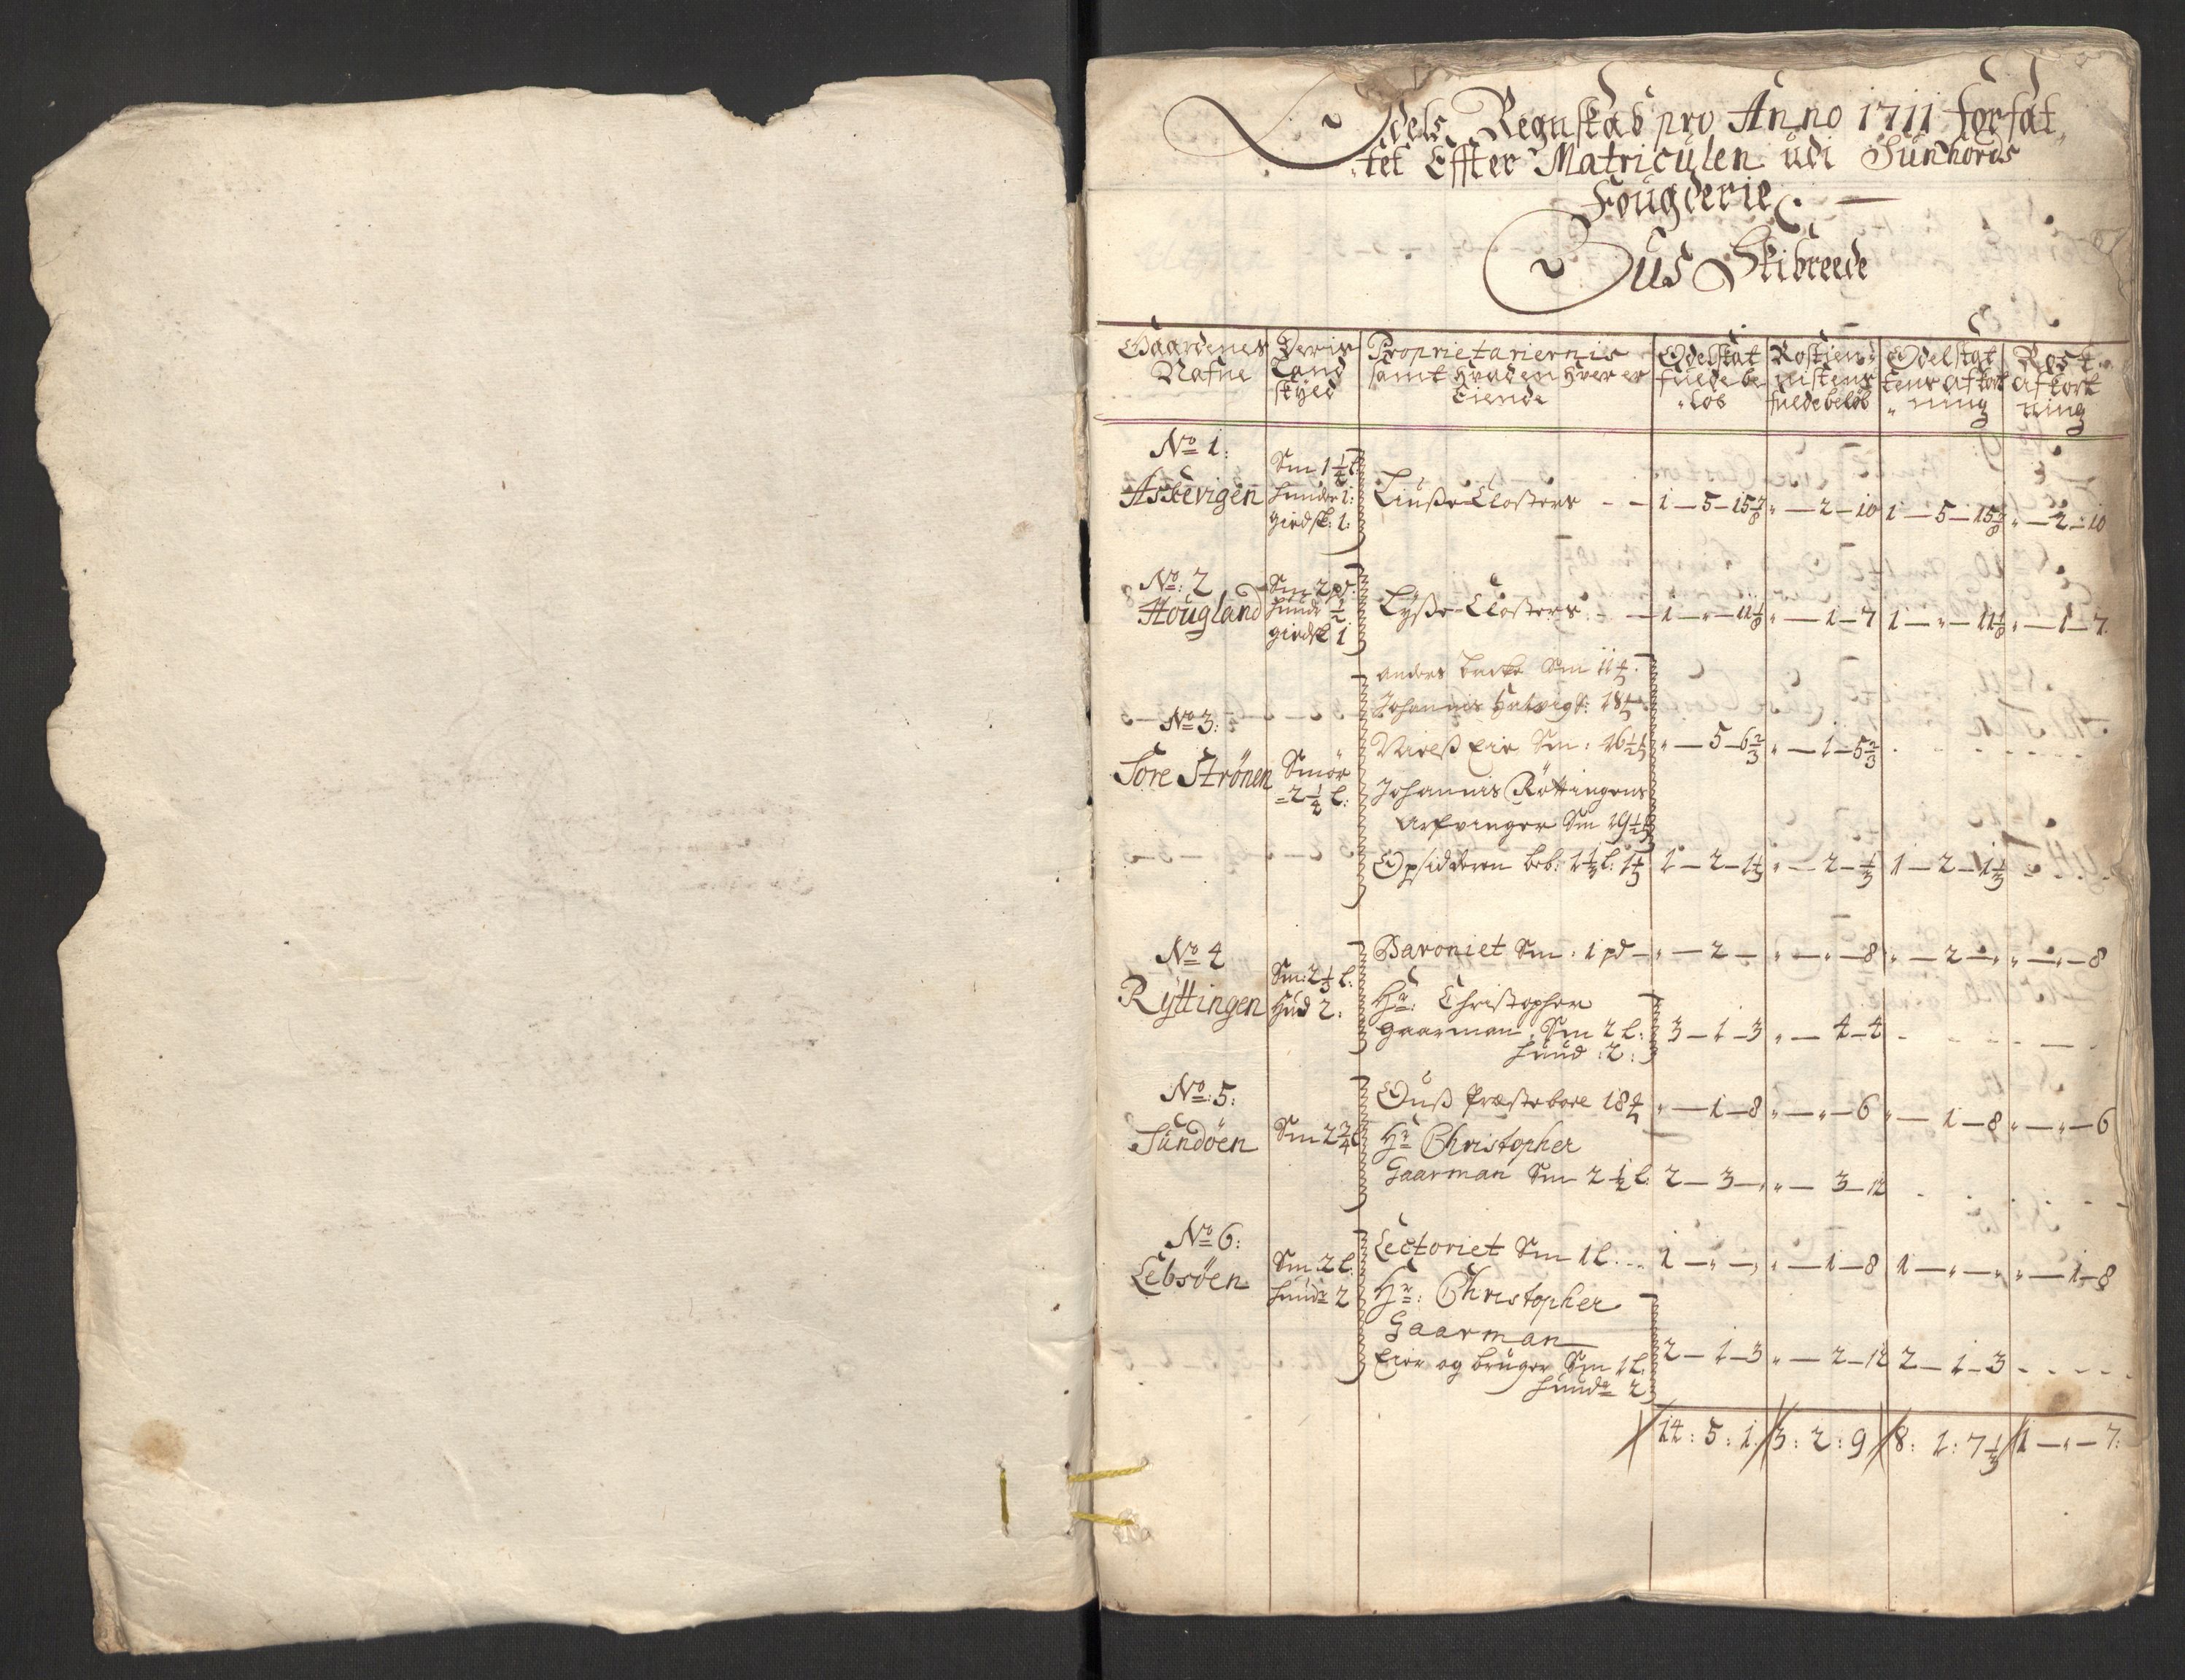 Odels Regnskab pro Anno 1711 forfat
tet Effter Matriculen udi Sünhords
Fougderie
Ous Skibreede
Gaardenes Nafne
Deris Land skyld
Proprietariernis samt Hvad en Hver er Eiende
Odelskat fulde be løb
Rostienistens fulde beløb
Odelskattens afkort ning
Rost. afkort ning
No 1:
Askevigen
Sm 1 1/4 l
Huder 1:
giedsk: 1:
Liusse Closters - - 1 — 5 — 15 7/8 " — 2 — 10 1 — 5 — 15 7/8 " — 2 — 10
No: 2
Hougland
Sm 2 pd:
Hude 1/2
giedsk 1
Lysse Closters - - 1 — " — 11 1/8 " — 1 — 7 1 — " — 11 1/8 " — 1 — 7
No 3:
Sore Strönen
Smör
2 1/4 l:
anders Sm
Johannis
Sm: " — 5 — 6 2/3 " — 1 — 5 2/3
Johannis Röttingens
Arfvinger Sm
Opsidderen beb: 1 — 2 — 1 1/3 " — 2 — 1/3 1 — 2 — 1 1/3
No 4
Ryttingen
Sm: 2 1/3 l:
Hud 2:
Baroniet Sm: 1 pd — " — 2 — " — " — 8 " — 2 — " " — " — 8
Hr: Christopher
Gaarman Sm 2 l: 3 — 1 — 3 " — 4 — 4
Huud: 2:
No: 5:
Sundöen
Sm 2 3/4 l
Ouss Præstebole " — 1 — 8 " — " — 6 " — 1 — 8 " — " — 6
Hr Christopher
Gaarman Sm 2 1/2 l: 2 — 3 — " " — 3 — 12
No 6:
Lebsöen
Sm 2 l:
Huude 2
Lectoriet Sm 1 l. 1 — " — " " — 1 — 8 1 — " — " " — 1 — 8
Hr: Christopher
Gaarman
Eier og bruger Sm 1 l: 2 — 1 — 3 " — 2 — 12 2 — 1 — 3
Hude 2
14: 5: 1 3: 2: 9 8: 1: 7 1/3 1 — " — 7: